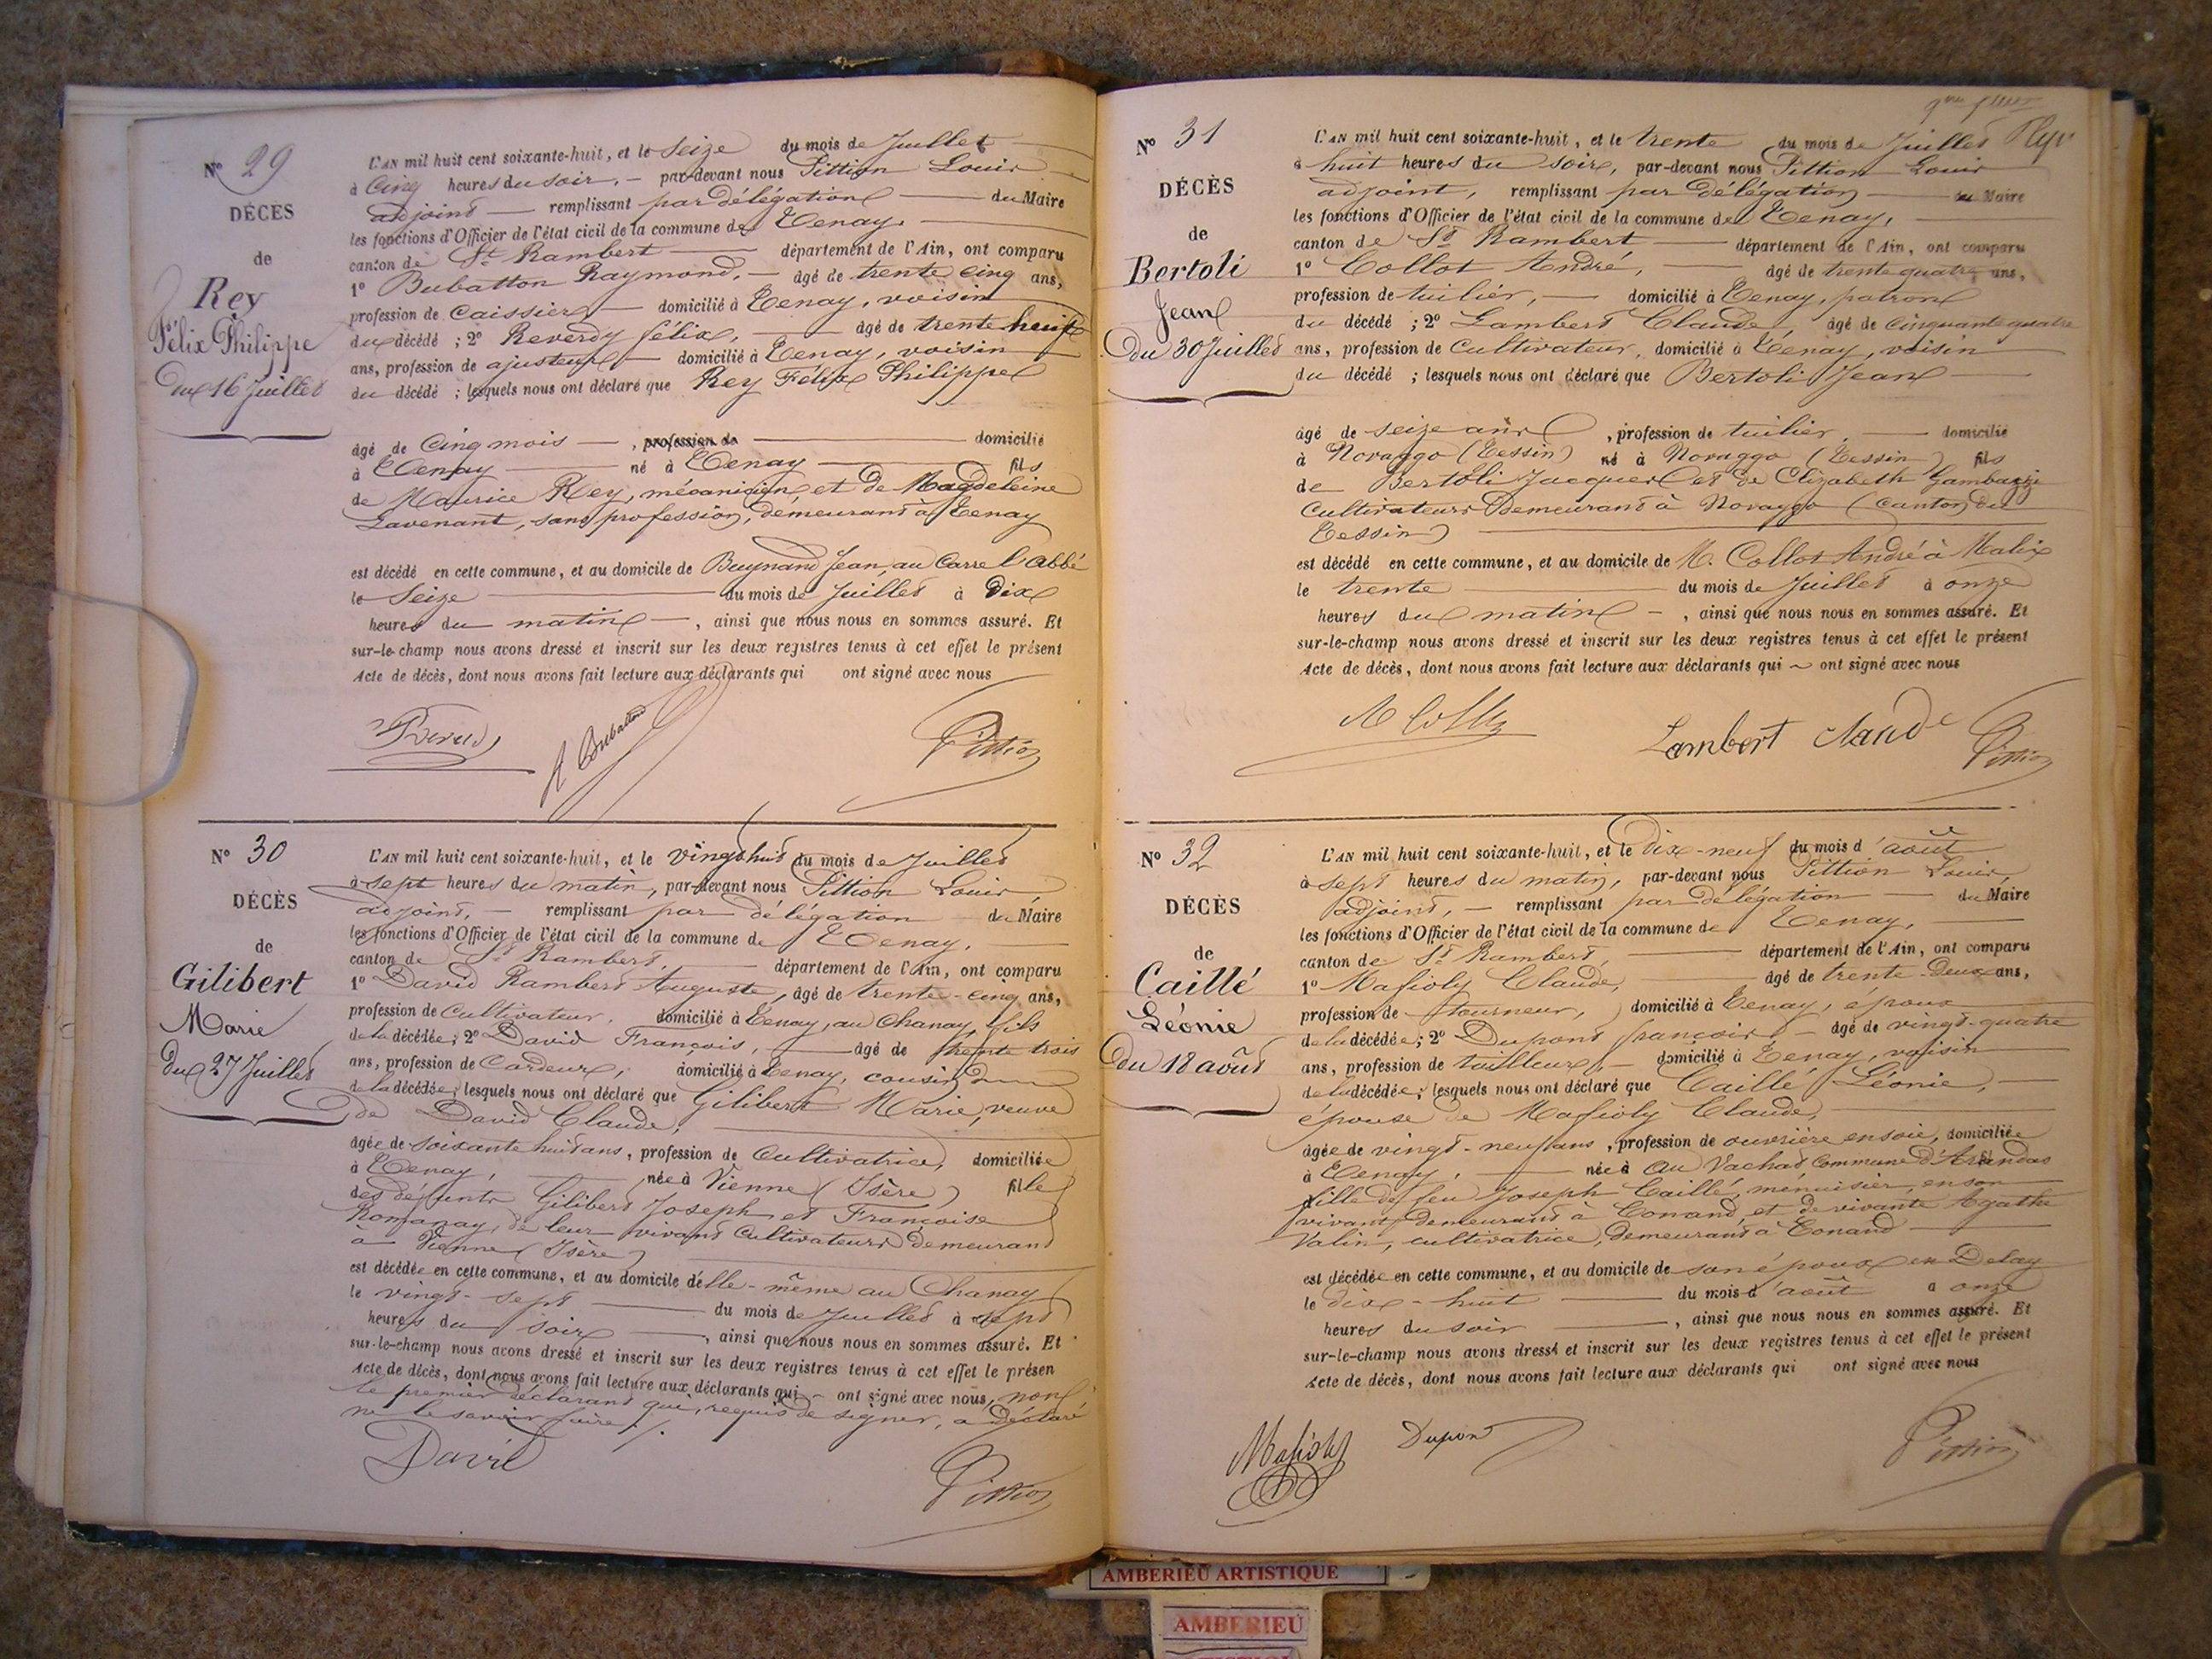 N° 29
DÉCÈS
de
Rey
Félix Philippe
du 16 Juillet
L'AN mil huit cent soixante-huit, et le Seize du mois de Juillet
à Cinq heures du soir, par-devant nous Pittion Louis
adjoint remplissant par délégation du Maire
les fonctions d'Officier de l'état civil de la commune de Tenay,
canton de St Rambert département de l'Ain, ont comparu
1° Bubatton Raymond, âgé de trente cinq ans,
profession de Caissier domicilié à Tenay, voisin
du décédé ; 2° Reverdy félix, âgé de trente neuf
ans, profession de ajusteur domicilié à Tenay, voisin
du décédé ; lesquels nous ont déclaré que Rey Félix Philippe
âgé de Cinq mois , profession de domicilié
à Tenay né à Tenay fils
de Maurice Rey, mécanicien, et de Magdeleine
Lavenant, sans profession, demeurant à Tenay
est décédé en cette commune, et au domicile de Buynand Jean, au Carre l'abbé
le Seize du mois de Juillet à Dix
heures du matin , ainsi que nous nous en sommes assuré. Et
sur-le-champ nous avons dressé et inscrit sur les deux registres tenus à cet effet le présent
Acte de décès, dont nous avons fait lecture aux déclarants qui ont signé avec nous
Pittion
N° 30
DÉCÈS
de
Gilibert
Marie
Du 27 Juillet
L'AN mil huit cent soixante-huit, et le vingt huit du mois de Juillet
à sept heures du matin, par-devant nous Pittion Louis
adjoint, remplissant par délégation du Maire
les fonctions d'Officier de l'état civil de la commune de Tenay,
canton de St Rambert, département de l'Ain, ont comparu
1° David Rambert Auguste, âgé de trente-cinq ans,
profession de Cultivateur, domicilié à Tenay, au Chanay, fils
de la décédée ; 2° David François, âgé de trente trois
ans, profession de Cardeur, domicilié à Tenay, cousin
de la décédée ; lesquels nous ont déclaré que Gilibert Marie, veuve
de David Claude,
âgée de soixante huit ans, profession de Cultivatrice, domiciliée
à Tenay, née à Vienne (Isère) fille
des défunts Gilibert Joseph et Françoise
Romanay, de leur vivant Cultivateurs demeurant
à Vienne (Isère)
est décédée en cette commune, et au domicile d'elle-même au Chanay
le vingt-sept du mois de Juillet à sept
heures du soir , ainsi que nous nous en sommes assuré. Et
sur-le-champ nous avons dressé et inscrit sur les deux registres tenus à cet effet le présen
Acte de décès, dont nous avons fait lecture aux déclarants qui ont signé avec nous, non
le premier déclarant qui, requis de signer, a déclaré
ne le savoir faire ./.
David
Pittion
N° 31
DÉCÈS
de
Bertoli
Jean
Du 30 Juillet
L'AN mil huit cent soixante-huit, et le trente du mois de Juillet
à huit heures du soir, par-devant nous Pittion Louis
adjoint, remplissant par délégation du Maire
les fonctions d'Officier de l'état civil de la commune de Tenay,
canton de St Rambert département de l'Ain, ont comparu
1° Collot André, âgé de trente quatre ans,
profession de tuilier, domicilié à Tenay, patron
du décédé ; 2° Lambert Claude, âgé de Cinquante quatre
ans, profession de Cultivateur, domicilié à Tenay, voisin
du décédé ; lesquels nous ont déclaré que Bertoli Jean
âgé de seize ans , profession de tuilier, domicilié
à Novaggo (Tessin) né à Novaggo (Tessin) fils
de Bertoli Jacques et de Elizabeth Gambazzi
Cultivateurs demeurant à Novaggo (Canton du
Tessin)
est décédé en cette commune, et au domicile de M. Collot André à Malix
le trente du mois de Juillet à onze
heures du matin , ainsi que nous nous en sommes assuré. Et
sur-le-champ nous avons dressé et inscrit sur les deux registres tenus à cet effet le présent
Acte de décès, dont nous avons fait lecture aux déclarants qui ~ ont signé avec nous
Lambert Claude
Pittion
N° 32
DÉCÈS
de
Caillé
Léonie
du 18 août
L'AN mil huit cent soixante-huit, et le Dix-neuf du mois d'août
à sept heures du matin, par-devant nous Pittion Louis,
adjoint, remplissant par délégation du Maire
les fonctions d'Officier de l'état civil de la commune de Tenay,
canton de St Rambert, département de l'Ain, ont comparu
1° Mafioly Claude, âgé de trente-deux ans,
profession de tourneur, domicilié à Tenay, époux
de la décédée ; 2° Dupont françois âgé de vingt-quatre
ans, profession de tailleur, domicilié à Tenay, voisin
de la décédée ; lesquels nous ont déclaré que Caillé Léonie,
épouse de Mafioly Claude,
âgée de vingt-neuf ans , profession de ouvrière en soie, domiciliée
à Tenay, née à au Vachat Commune d'Arandas
fille de feu Joseph Caillé, menuisier, en son
vivant demeurant à Conand, et de vivante Agathe
Valin, cultivatrice, demeurant à Conand
est décédée en cette commune, et au domicile de son époux en Delay
le dix-huit du mois d'août à onze
heures du soir , ainsi que nous nous en sommes assuré. Et
sur-le-champ nous avons dressé et inscrit sur les deux registres tenus à cet effet le présent
Acte de décès, dont nous avons fait lecture aux déclarants qui ont signé avec nous
Mafioly
Dupont
Pittion
AMBERIEU ARTISTIQUE
AMBERIEU